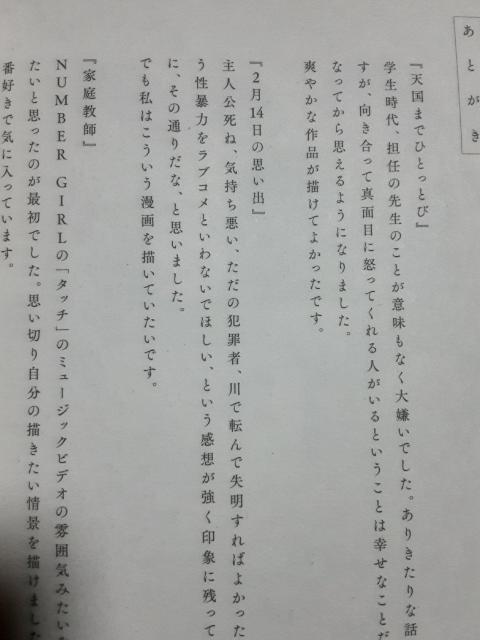 あとがき
『天国までひとっとび』
学生時代、担任の先生のことが意味もなく大嫌いでした。ありきたりな話
すが、向き合って真面目に怒ってくれる人がいるということは幸せなことだ
なってから思えるようになりました。
爽やかな作品が描けてよかったです。
『2月14日の思い出』
主人公死ね、気持ち悪い、ただの犯罪者、川で転んで失明すればよかった
う性暴力をラブコメといわないでほしい、という感想が強く印象に残って
に、その通りだな、と思いました。
でも私はこういう漫画を描いていたいです。
『家庭教師』
NUMBER GIRLの「タッチ」のミュージックビデオの雰囲気みたいな
たいと思ったのが最初でした。思い切り自分の描きたい情景を描けました
番好きで気に入っています。